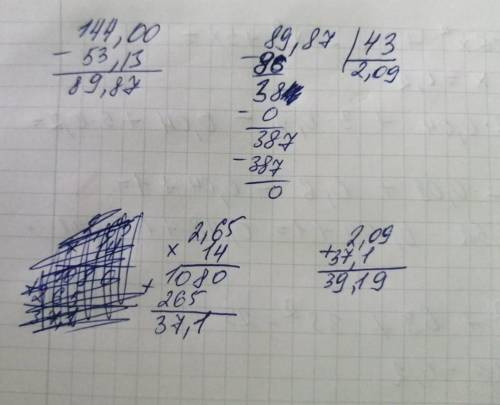 144,00
- 53,13
89,87
- 89,87 | 43
86 2,09
38
- 0
387
- 387
0
2,65
× 14
+ 1080
265
37,1
2,09
+ 37,1
39,19